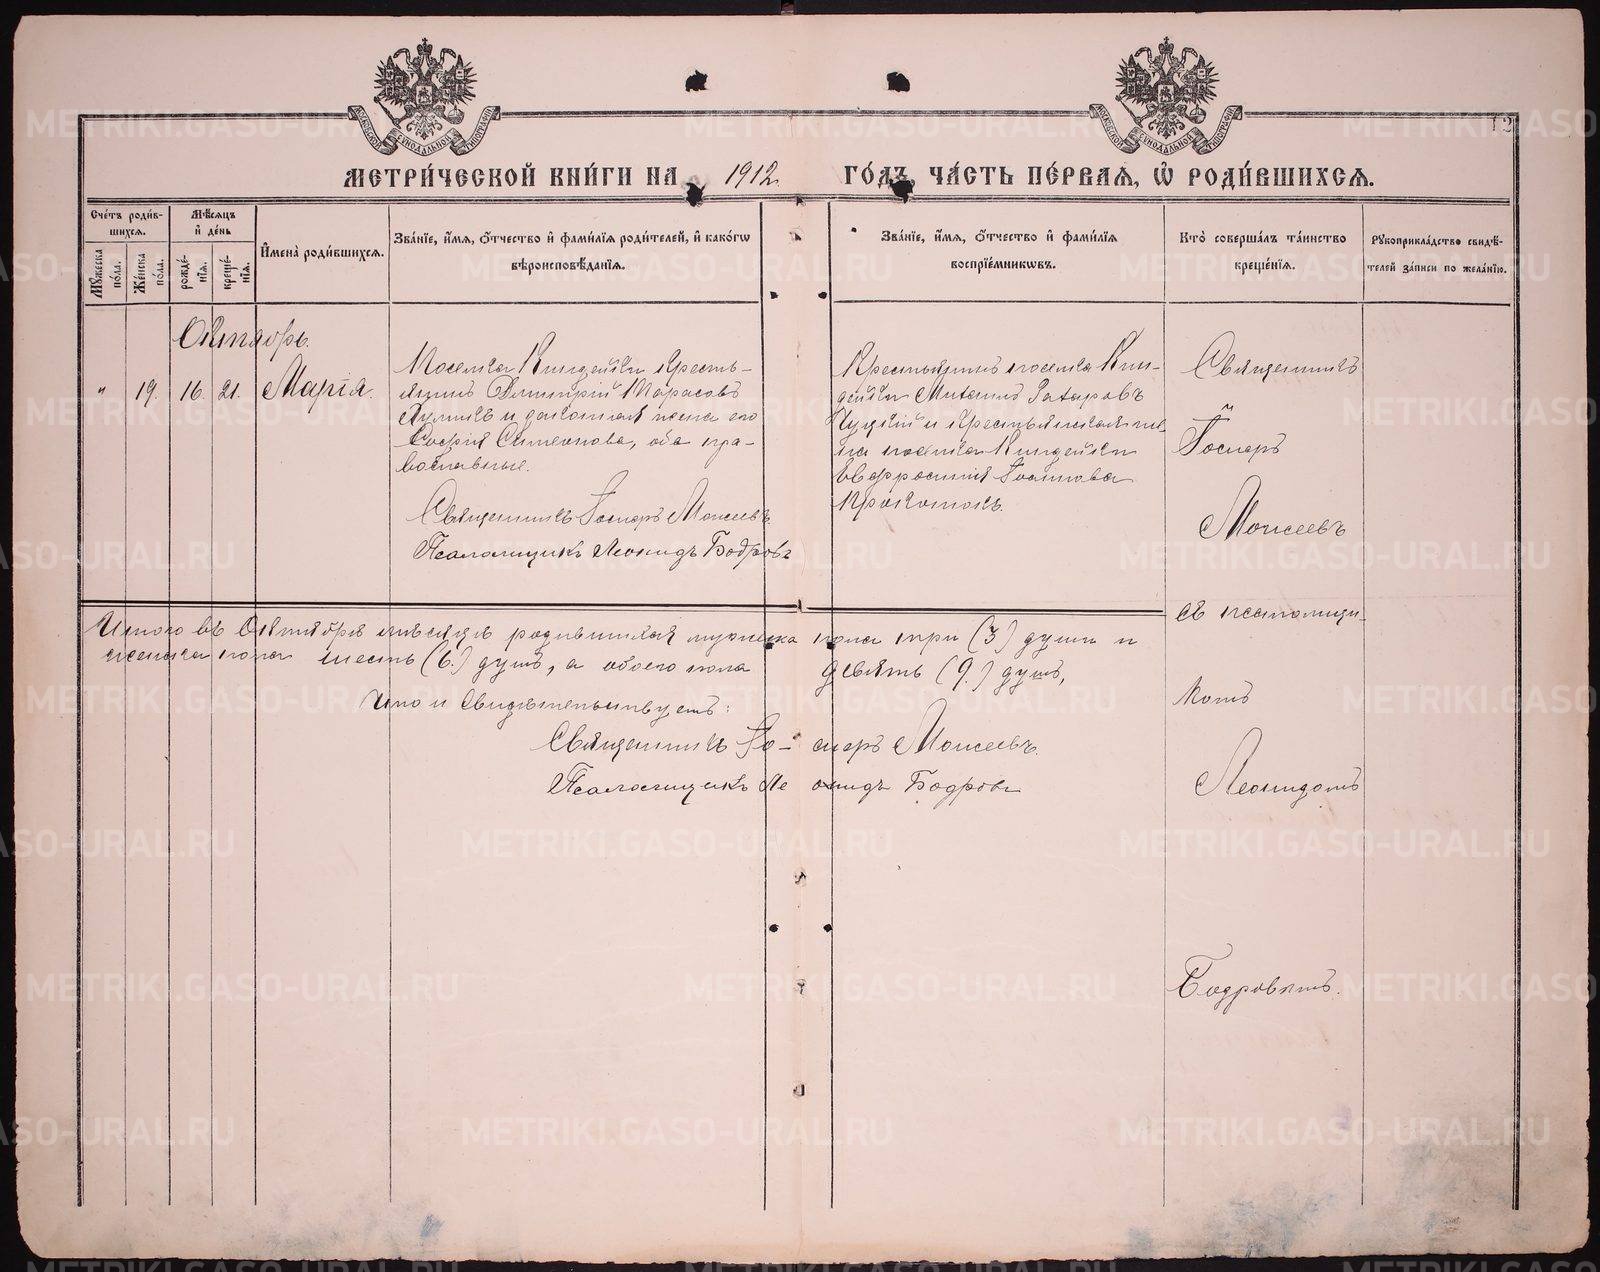 МОСКОВСКОЙ СѴНОДАЛЬНОЙ ТИПОГРАФІИ
МОСКОВСКОЙ СѴНОДАЛЬНОЙ ТИПОГРАФІИ
12
МЕТРИ́ЧЕСКОЙ КНИ́ГИ НА 1912 ГО́ДЪ, ЧА́СТЬ ПЕ́РВАѦ, Ѡ҆ РОДИ́ВШИХСѦ.
Сче́тъ роди́в-
шихсѧ.
Мꙋ́жеска по́ла.
Же́нска по́ла.
Мѣ́сѧцъ
и҆ де́нь
рожде́-
нїѧ.
креще́-
нїѧ.
И҆мена̀ роди́вшихсѧ.
Зва́нїе, и҆́мѧ, ѻ҆́тчество и҆ фами́лїѧ роди́телей, и҆ како́гѡ
вѣроисповѣ́данїѧ.
Зва́нїе, и҆́мѧ, ѻ҆́тчество и҆ фами́лїѧ
воспрїе́мникѡвъ.
Кто̀ соверша́лъ та́инство
креще́нїѧ.
Рꙋкоприкла́дство свидѣ́-
телей за́писи по жела́нїю.
Октябрь.
" 19. 16. 21. Марія.
Поселка Киндейки кресть-
янинъ Димитрій Тарасовъ
и законная жена его
Софія Симеонова, оба пра-
вославные.
Священникъ Госпаръ Моисеевъ
Псаломщикъ Леонидъ Бодровъ
Крестьянинъ поселка Кин-
дейки Захаровъ
и крестьянская же-
на поселка Киндейки
Евфросинія Іоаннова
Священникъ
Госпаръ
Моисеевъ
съ псаломщи-
комъ
Леонидомъ
Бодровымъ.
Итого въ Октябрѣ мѣсяцѣ родившихся мужеска пола три (3) души и
женска пола шесть (6.) душъ, а обоего пола девять (9.) душъ,
Что и свидѣтельствуетъ:
Священникъ Го-споръ Моисеевъ.
Псаломщикъ Леонидъ Бодровъ
METRIKI.GASO-URAL.RU